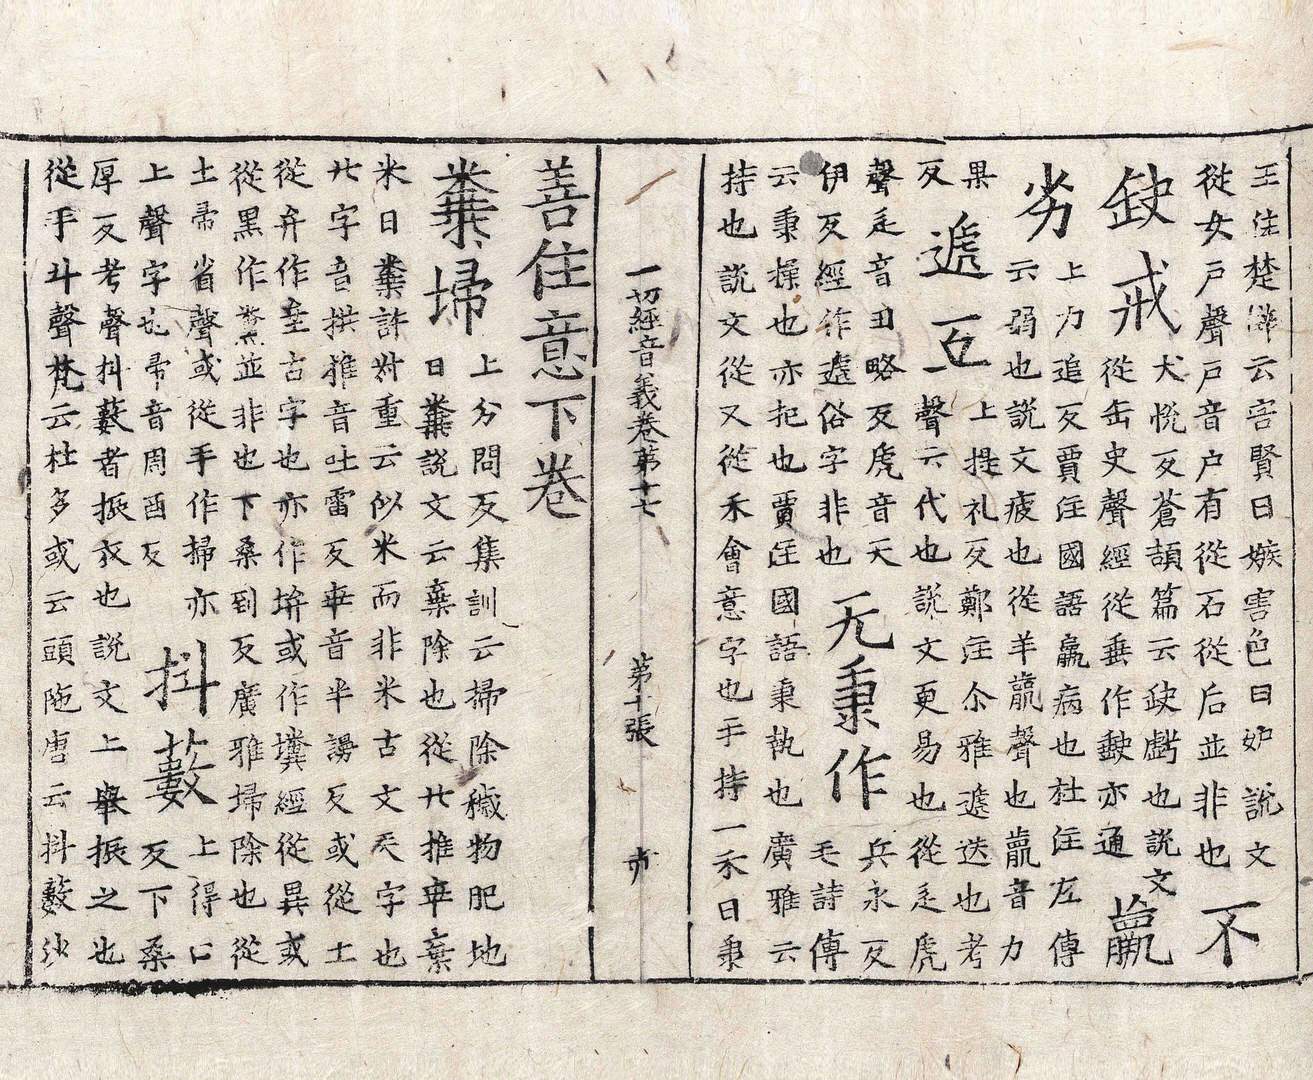 王注楚辭云害賢曰嫉害色曰妒說文
從女戶聲戶音户有從石從后並非也 不
缺戒 犬恱反蒼頡篇云缺虧也說文
從缶史聲經從垂作𡙇亦通 羸
劣 上力追反賈注國語羸病也杜注左傳
云弱也說文疲也從羊𣎆聲也𣎆音力
果
反 遞互 上提礼反鄭注尒雅遞迭也考
聲云代也說文更易也從辵虒
聲辵音丑略反虒音天
伊反經作遞俗字非也 无秉作 兵永反
毛詩傳
云秉操也亦把也賈注國語秉執也廣雅云
持也說文從又從禾會意字也手持一禾曰秉
一切經音義卷第十七 第十張
善住意下卷
糞掃 上分問反集訓云掃除穢物肥地
曰糞說文云棄除也從廾推𠦒棄
米曰糞許对重云似米而非米古文矢字也
廾字音拱推音吐雷反𠦒音半謾反或從土
從弁作𡊅古字也亦作坋或作墳經從異或
從黑作並非也下桑到反廣雅埽除也從
土帚省聲或從手作掃亦
上聲字也帚音周酉反 抖藪 上得口
反下桑
厚反考聲抖藪者振衣也說文上舉振之也
從手斗聲梵云杜多或云頭陁唐云抖藪沙